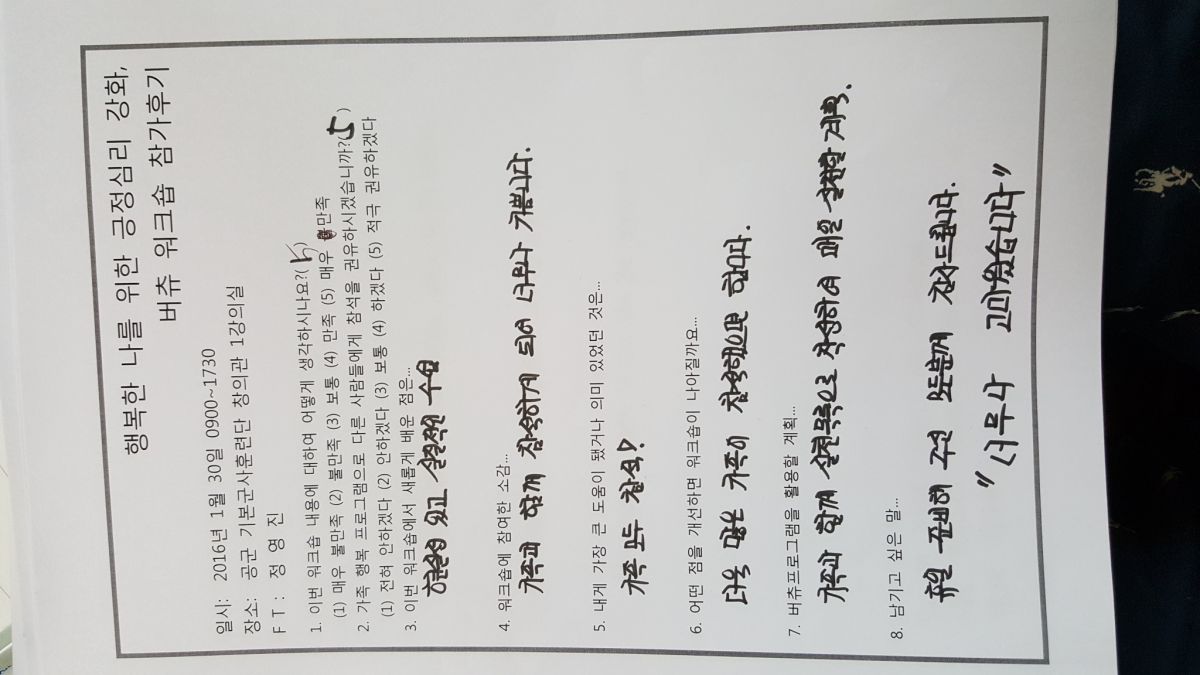 행복한 나를 위한 긍정심리 강화,
버츄 워크숍 참가후기
일시: 2016년 1월 30일 0900~1730
장소: 공군 기본군사훈련단 창의관 1강의실
F T : 정 영 진
1. 이번 워크숍 내용에 대하여 어떻게 생각하시나요?( 5 )
(1) 매우 불만족 (2) 불만족 (3) 보통 (4) 만족 (5) 매우 만족
2. 가족 행복 프로그램으로 다른 사람들에게 참석을 권유하시겠습니까?( 5 )
(1) 전혀 안하겠다 (2) 안하겠다 (3) 보통 (4) 하겠다 (5) 적극 권유하겠다
3. 이번 워크숍에서 새롭게 배운 점은...
현실성 있고 실질적인 수업
4. 워크숍에 참여한 소감...
가족과 함께 참석하게 되어 너무나 기쁩니다.
5. 내게 가장 큰 도움이 됐거나 의미 있었던 것은...
가족 모두 참석!
6. 어떤 점을 개선하면 워크숍이 나아질까요...
더욱 많은 가족이 참석했으면 합니다.
7. 버츄프로그램을 활용할 계획...
가족과 함께 실천목록으로 작성하여 매일 실천할 계획.
8. 남기고 싶은 말...
휴일 준비해 주신 모든분께 감사드립니다.
"너무나 고마웠습니다"